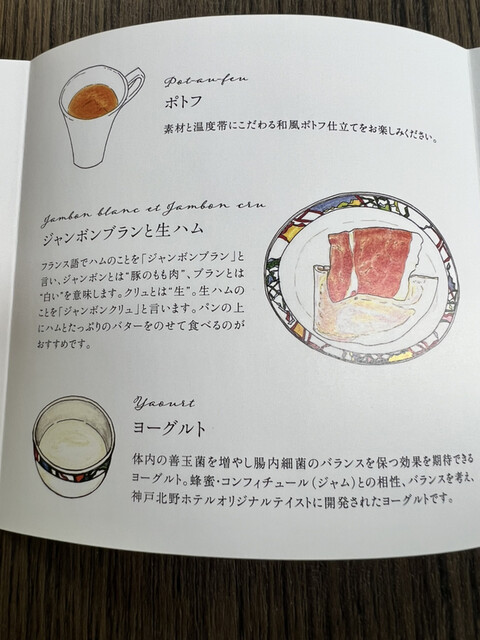 Pot-au-feu
ポトフ
素材と温度帯にこだわる和風ポトフ仕立てをお楽しみください。
Jambon blanc et Jambon cru
ジャンボンブランと生ハム
フランス語でハムのことを「ジャンボンブラン」と
言い、ジャンボンとは“豚のもも肉”、ブランとは
“白い”を意味します。クリュとは“生”。生ハムの
ことを「ジャンボンクリュ」と言います。パンの上
にハムとたっぷりのバターをのせて食べるのが
おすすめです。
Yaourt
ヨーグルト
体内の善玉菌を増やし腸内細菌のバランスを保つ効果を期待できる
ヨーグルト。蜂蜜・コンフィチュール(ジャム)との相性、バランスを考え、
神戸北野ホテルオリジナルテイストに開発されたヨーグルトです。